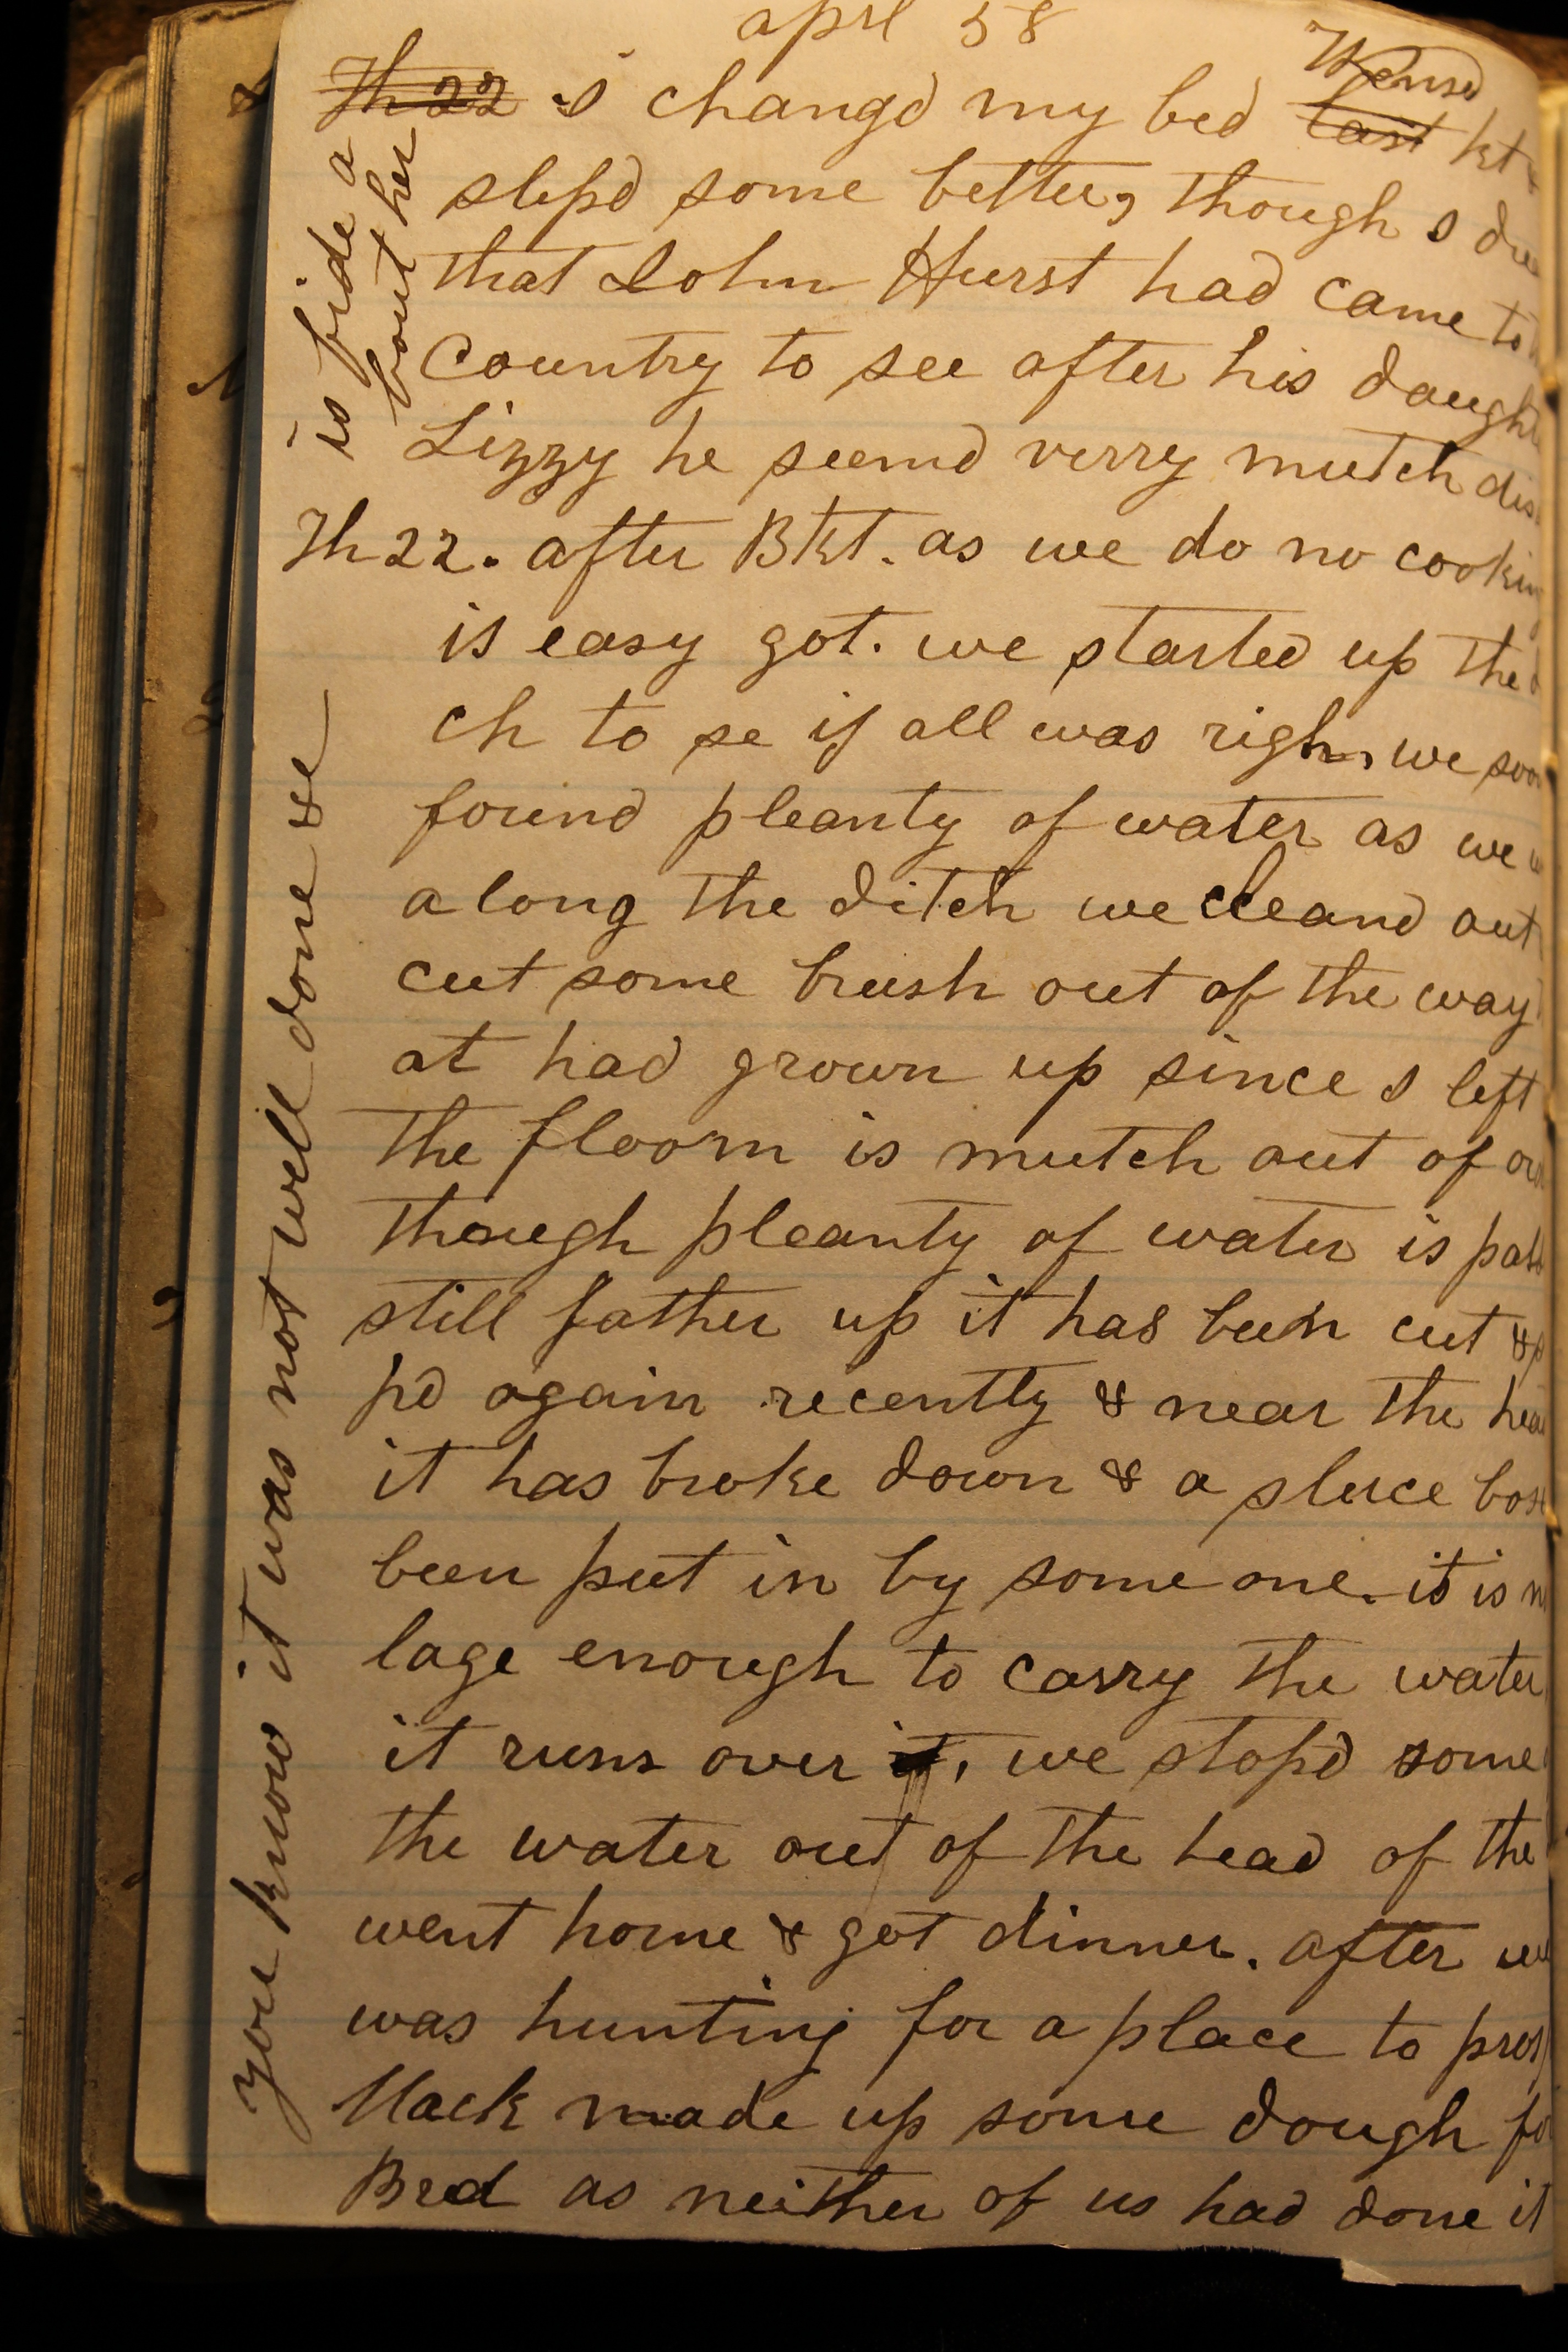 aprl 58
Th 22 I changd my bed last Wensd
slepd some better, though I
that John Hurst had came to
Country to see after his
Lizzy he seemd verry mutch
Th 22. after Bkt. as we do no
is easy got. we started up the
ch to se if all was righ, we
found pleanty of water as we
along the ditch we cleand out
cut some brush out of the way
at had grown up since I left
the floom is mutch out of
though pleanty of water is
still father up it has been cut &
pd again recently & near the
it has broke down & a sluce
been put in by some one. it is
lage enough to carry the water
it runs over it, we stopd some
the water out of the head of the
went home & got dinner. after
was hunting for a place to
Mack made up some dough
Bred as neither of us had done it
you know it was not well done &c
is side a
bout her